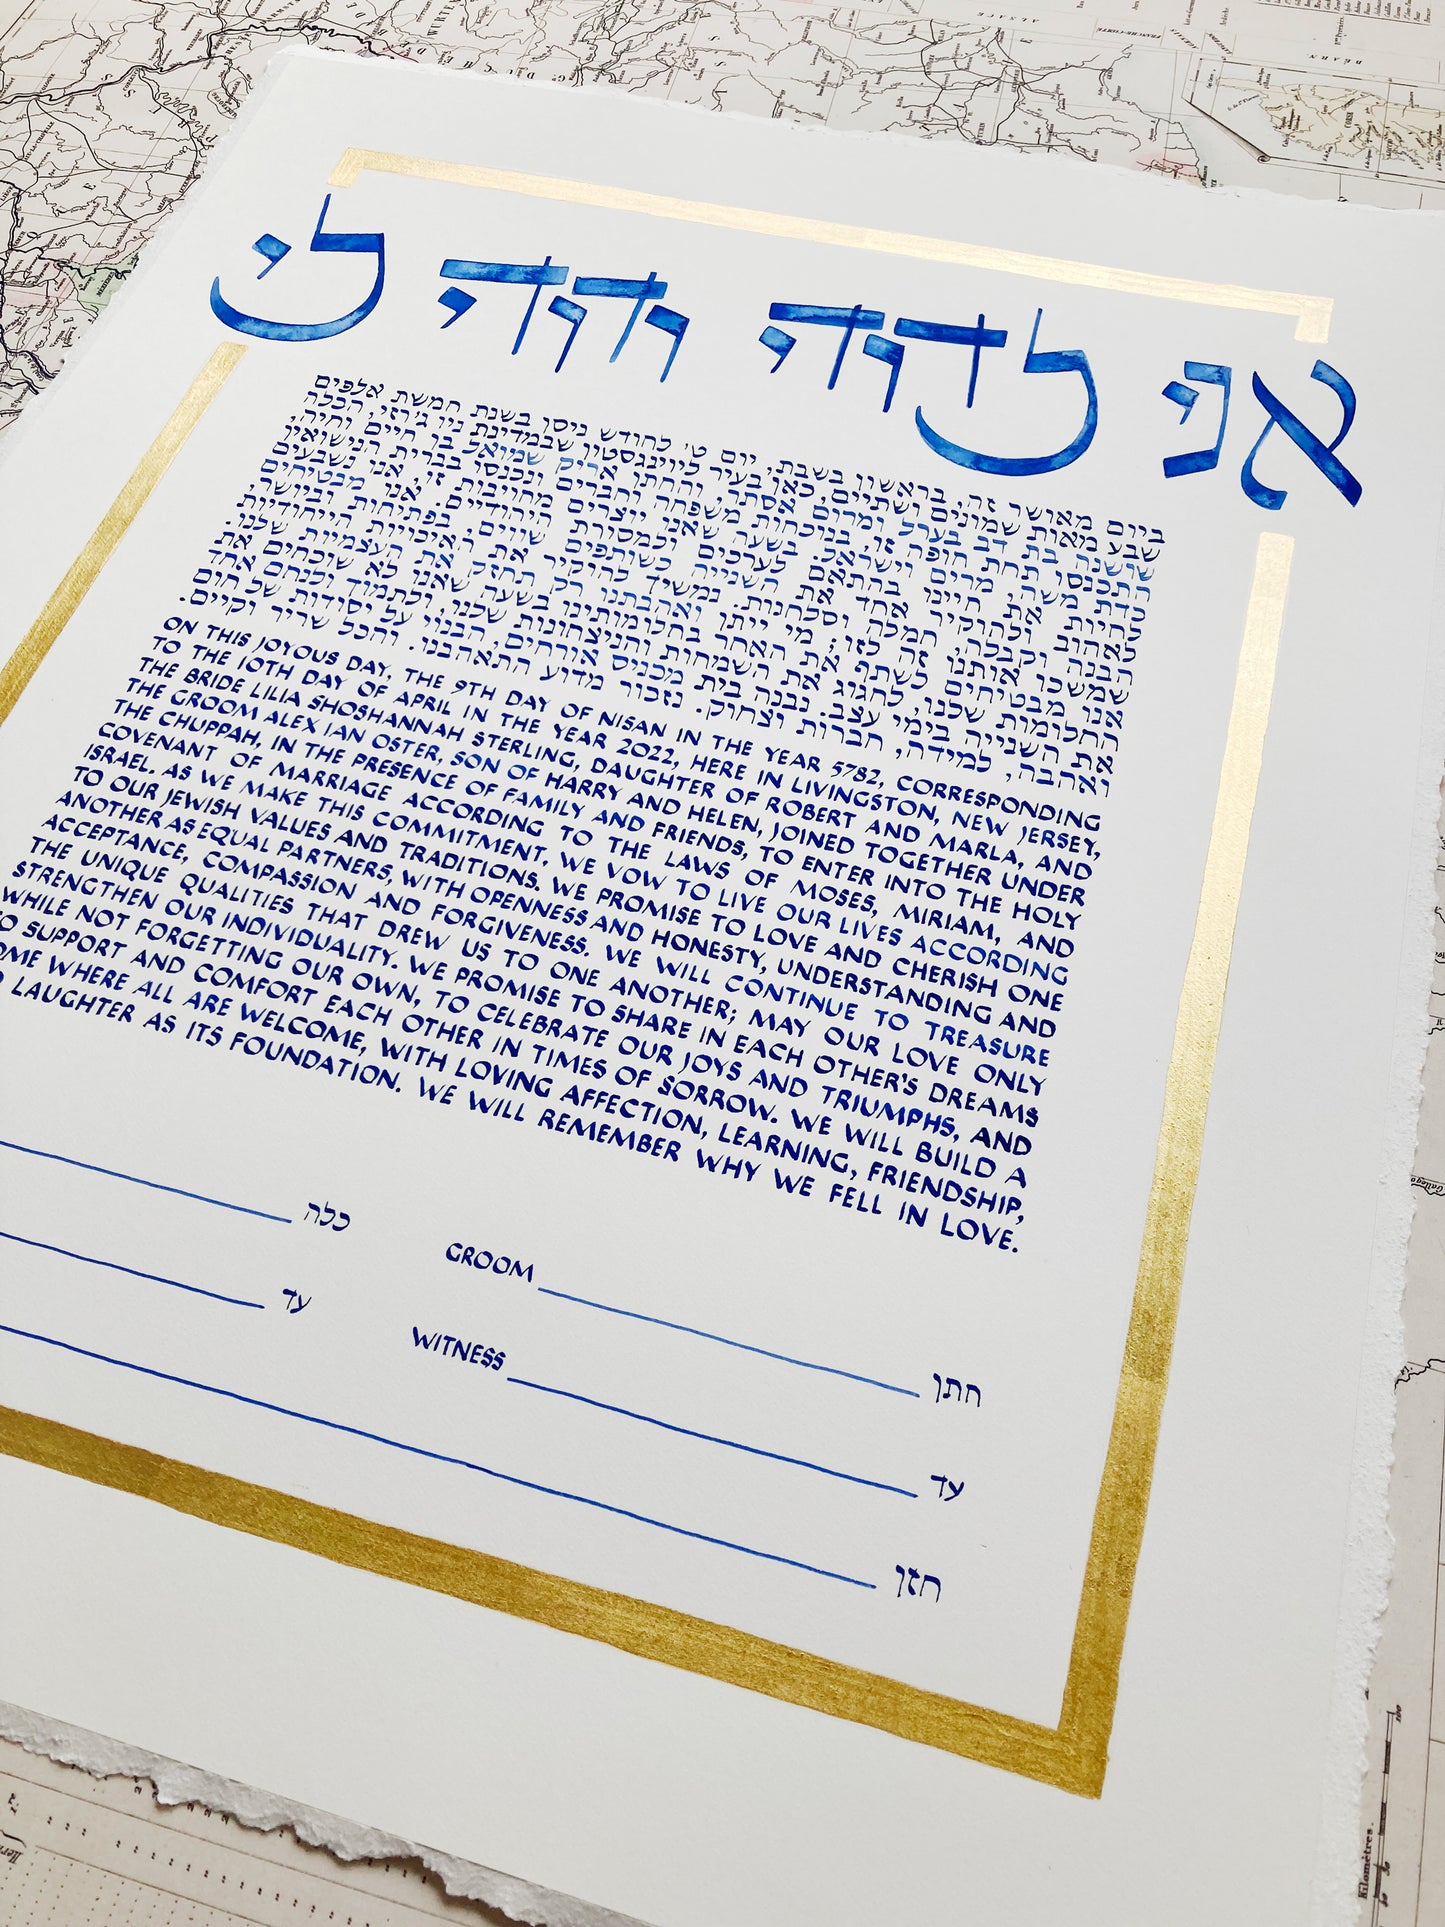 אני לדודי ודודי לי
ביום מאושר זה, בראשון בשבת, יום ט׳ לחודש ניסן בשנת חמשת אלפים
שבע מאות שמונים ושתיים, כאן בעיר ליווינגסטין שבמדינת ניו ג׳רזי, הכלה
שושנה בת דב בערל ומרום אסתר, והחתן אריק שמואל בן חיים וחיה,
התכנסו תחת חופה זו, בנוכחות משפחה וחברים ונכנסו בברית הנישואין
כדת משה, מרים וישראל. בשעה שאנו יוצרים מחויבות זו, אנו נשבעים
לחיות את חיינו בהתאם לערכים ולמסורת היהודיים. אנו מבטיחים
לאהוב ולהוקיר אחד את השנייה כשותפים שווים, בפתיחות וביושר,
הבנה וקבלה, חמלה וסלחנות. נמשיך להוקיר את האיכויות הייחודיות
שמשכו אותנו זה לזו; מי ייתן ואהבתנו רק תחזק את העצמיות שלנו.
אנו מבטיחים לשתף את האחר בחלומותינו בשעה שאנו לא שוכחים את
החלומות שלנו, לחגוג את השמחות והניצחונות שלנו, ולתמוך ולנחם אחד
את השנייה בימי עצב. נבנה בית מכניס אורחים, הבנוי על יסודות של חום
ואהבה, למידה, חברות וצחוק. נזכור מדוע התאהבנו. והכל שריר וקיים.
ON THIS JOYOUS DAY, THE 9TH DAY OF NISAN IN THE YEAR 5782, CORRESPONDING
TO THE 10TH DAY OF APRIL IN THE YEAR 2022, HERE IN LIVINGSTON, NEW JERSEY,
THE BRIDE LILIA SHOSHANNAH STERLING, DAUGHTER OF ROBERT AND MARLA, AND
THE GROOM ALEX IAN OSTER, SON OF HARRY AND HELEN, JOINED TOGETHER UNDER
THE CHUPPAH, IN THE PRESENCE OF FAMILY AND FRIENDS, TO ENTER INTO THE HOLY
COVENANT OF MARRIAGE ACCORDING TO THE LAWS OF MOSES, MIRIAM, AND
ISRAEL. AS WE MAKE THIS COMMITMENT, WE VOW TO LIVE OUR LIVES ACCORDING
TO OUR JEWISH VALUES AND TRADITIONS. WE PROMISE TO LOVE AND CHERISH ONE
ANOTHER AS EQUAL PARTNERS, WITH OPENNESS AND HONESTY, UNDERSTANDING AND
ACCEPTANCE, COMPASSION AND FORGIVENESS. WE WILL CONTINUE TO TREASURE
THE UNIQUE QUALITIES THAT DREW US TO ONE ANOTHER; MAY OUR LOVE ONLY
STRENGTHEN OUR INDIVIDUALITY. WE PROMISE TO SHARE IN EACH OTHER'S DREAMS
WHILE NOT FORGETTING OUR OWN, TO CELEBRATE OUR JOYS AND TRIUMPHS, AND
TO SUPPORT AND COMFORT EACH OTHER IN TIMES OF SORROW. WE WILL BUILD A
OME WHERE ALL ARE WELCOME, WITH LOVING AFFECTION, LEARNING, FRIENDSHIP,
D LAUGHTER AS ITS FOUNDATION. WE WILL REMEMBER WHY WE FELL IN LOVE.
כלה
GROOM חתן
עד
WITNESS עד
חזן